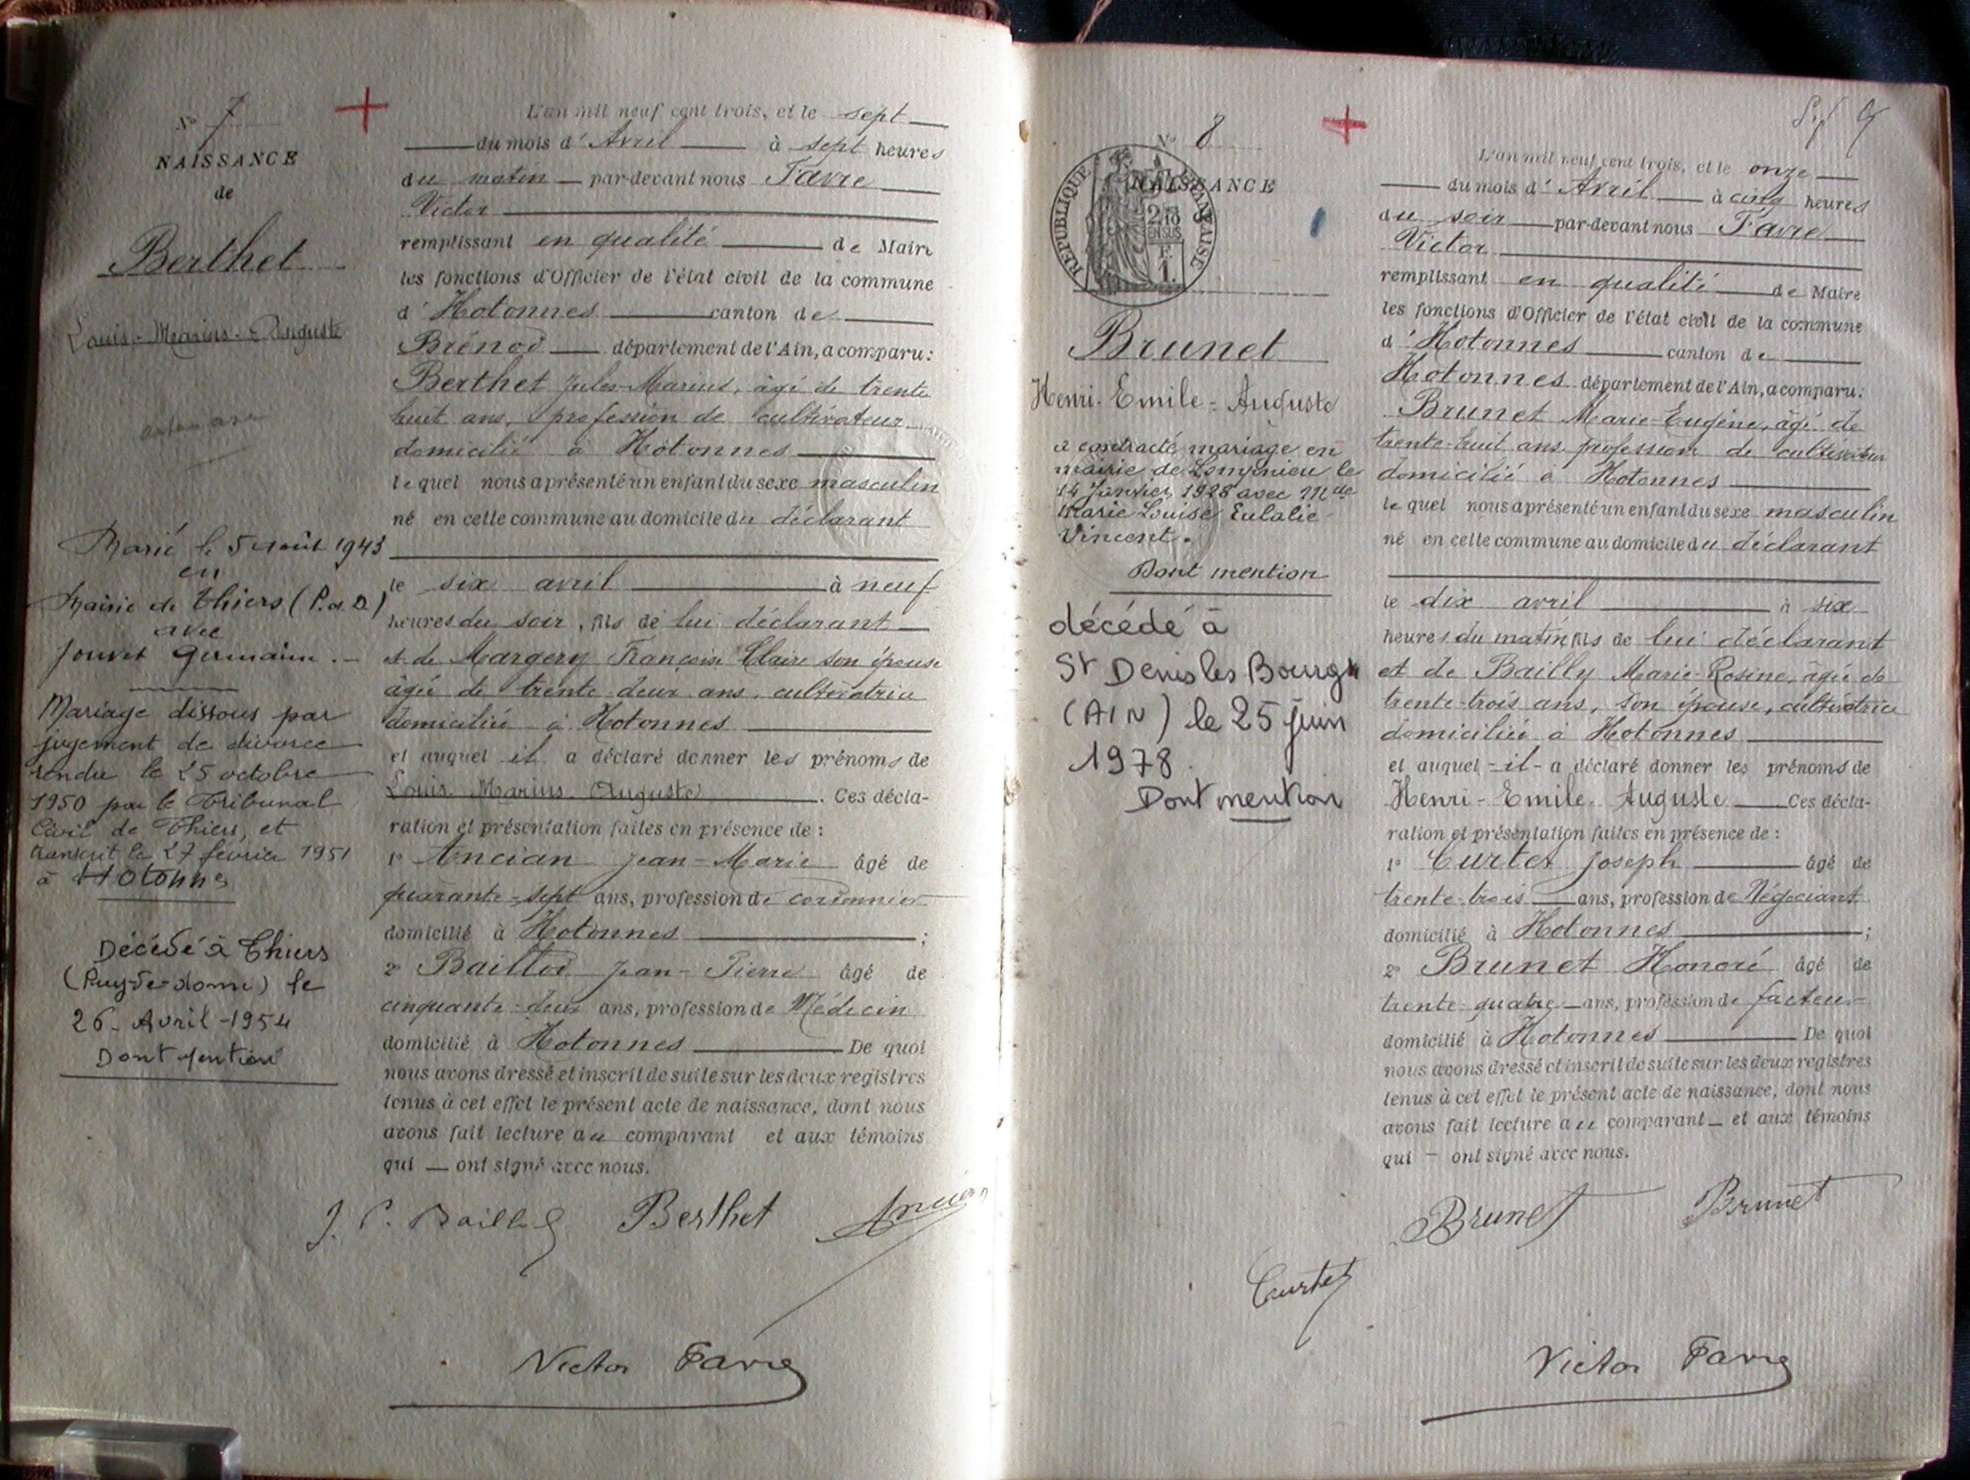 N° 7
NAISSANCE
de
Berthet
Louis-Marius-Auguste
Marié le 5 Août 1943
en
Mairie de Thiers (P. de D.)
avec
Jouvet Germaine.
Mariage dissous par
jugement de divorce
rendu le 25 octobre
1950 par le Tribunal
Civil de Thiers, et
transcrit le 27 février 1951
à Hotonnes
Décédé à Thiers
(Puy-de-dome) le
26 - Avril - 1954
Dont mention
L'an mil neuf cent trois, et le sept
du mois d'Avril à sept heures
du matin par-devant nous Favre
Victor
remplissant en qualité de Maire
les fonctions d'Officier de l'état civil de la commune
d'Hotonnes canton de
Brénod département de l'Ain, a comparu :
Berthet Jules-Marius, âgé de trente
huit ans, profession de cultivateur
domicilié à Hotonnes
lequel nous a présenté un enfant du sexe masculin
né en cette commune au domicile du déclarant
le six avril à neuf
heures du soir, fils de lui déclarant
et de Margery Françoise Claire son épouse
âgée de trente-deux ans, cultivatrice
domiciliée à Hotonnes
et auquel il a déclaré donner les prénoms de
Louis Marius Auguste. Ces décla-
ration et présentation faites en présence de :
1° Ancian Jean-Marie âgé de
quarante-sept ans, profession de cordonnier
domicilié à Hotonnes ;
2° Baillod Jean-Pierre âgé de
cinquante-deux ans, profession de Médecin
domicilié à Hotonnes De quoi
nous avons dressé et inscrit de suite sur les deux registres
tenus à cet effet le présent acte de naissance, dont nous
avons fait lecture au comparant et aux témoins
qui ont signé avec nous.
J. P. Baillod Berthet Ancian
Victor Favre
N° 8
NAISSANCE
RÉPUBLIQUE FRANÇAISE
2/10 EN SUS
1 F
Brunet
Henri-Emile-Auguste
a contracté mariage en
mairie de Lompnieu le
14 Janvier 1928 avec Mlle
Marie Louise Eulalie
Vincent.
Dont mention
décédé à
St Denis les Bourg
(AIN) le 25 juin
1978.
Dont mention
L'an mil neuf cent trois, et le onze
du mois d'Avril à cinq heures
du soir par-devant nous Favre
Victor
remplissant en qualité de Maire
les fonctions d'Officier de l'état civil de la commune
d'Hotonnes canton de
Hotonnes département de l'Ain, a comparu :
Brunet Marie-Eugène, âgé de
trente-huit ans, profession de cultivateur
domicilié à Hotonnes
lequel nous a présenté un enfant du sexe masculin
né en cette commune au domicile du déclarant
le dix avril à six
heures du matin, fils de lui déclarant
et de Bailly Marie-Rosine, âgée de
trente-trois ans, son épouse, cultivatrice
domiciliée à Hotonnes
et auquel - il - a déclaré donner les prénoms de
Henri-Emile-Auguste Ces décla-
ration et présentation faites en présence de :
1° Curtet Joseph âgé de
trente-trois ans, profession de Négociant
domicilié à Hotonnes ;
2° Brunet Honoré âgé de
trente-quatre ans, profession de facteur
domicilié à Hotonnes De quoi
nous avons dressé et inscrit de suite sur les deux registres
tenus à cet effet le présent acte de naissance, dont nous
avons fait lecture au comparant et aux témoins
qui - ont signé avec nous.
Brunet Brunet
Curtet
Victor Favre